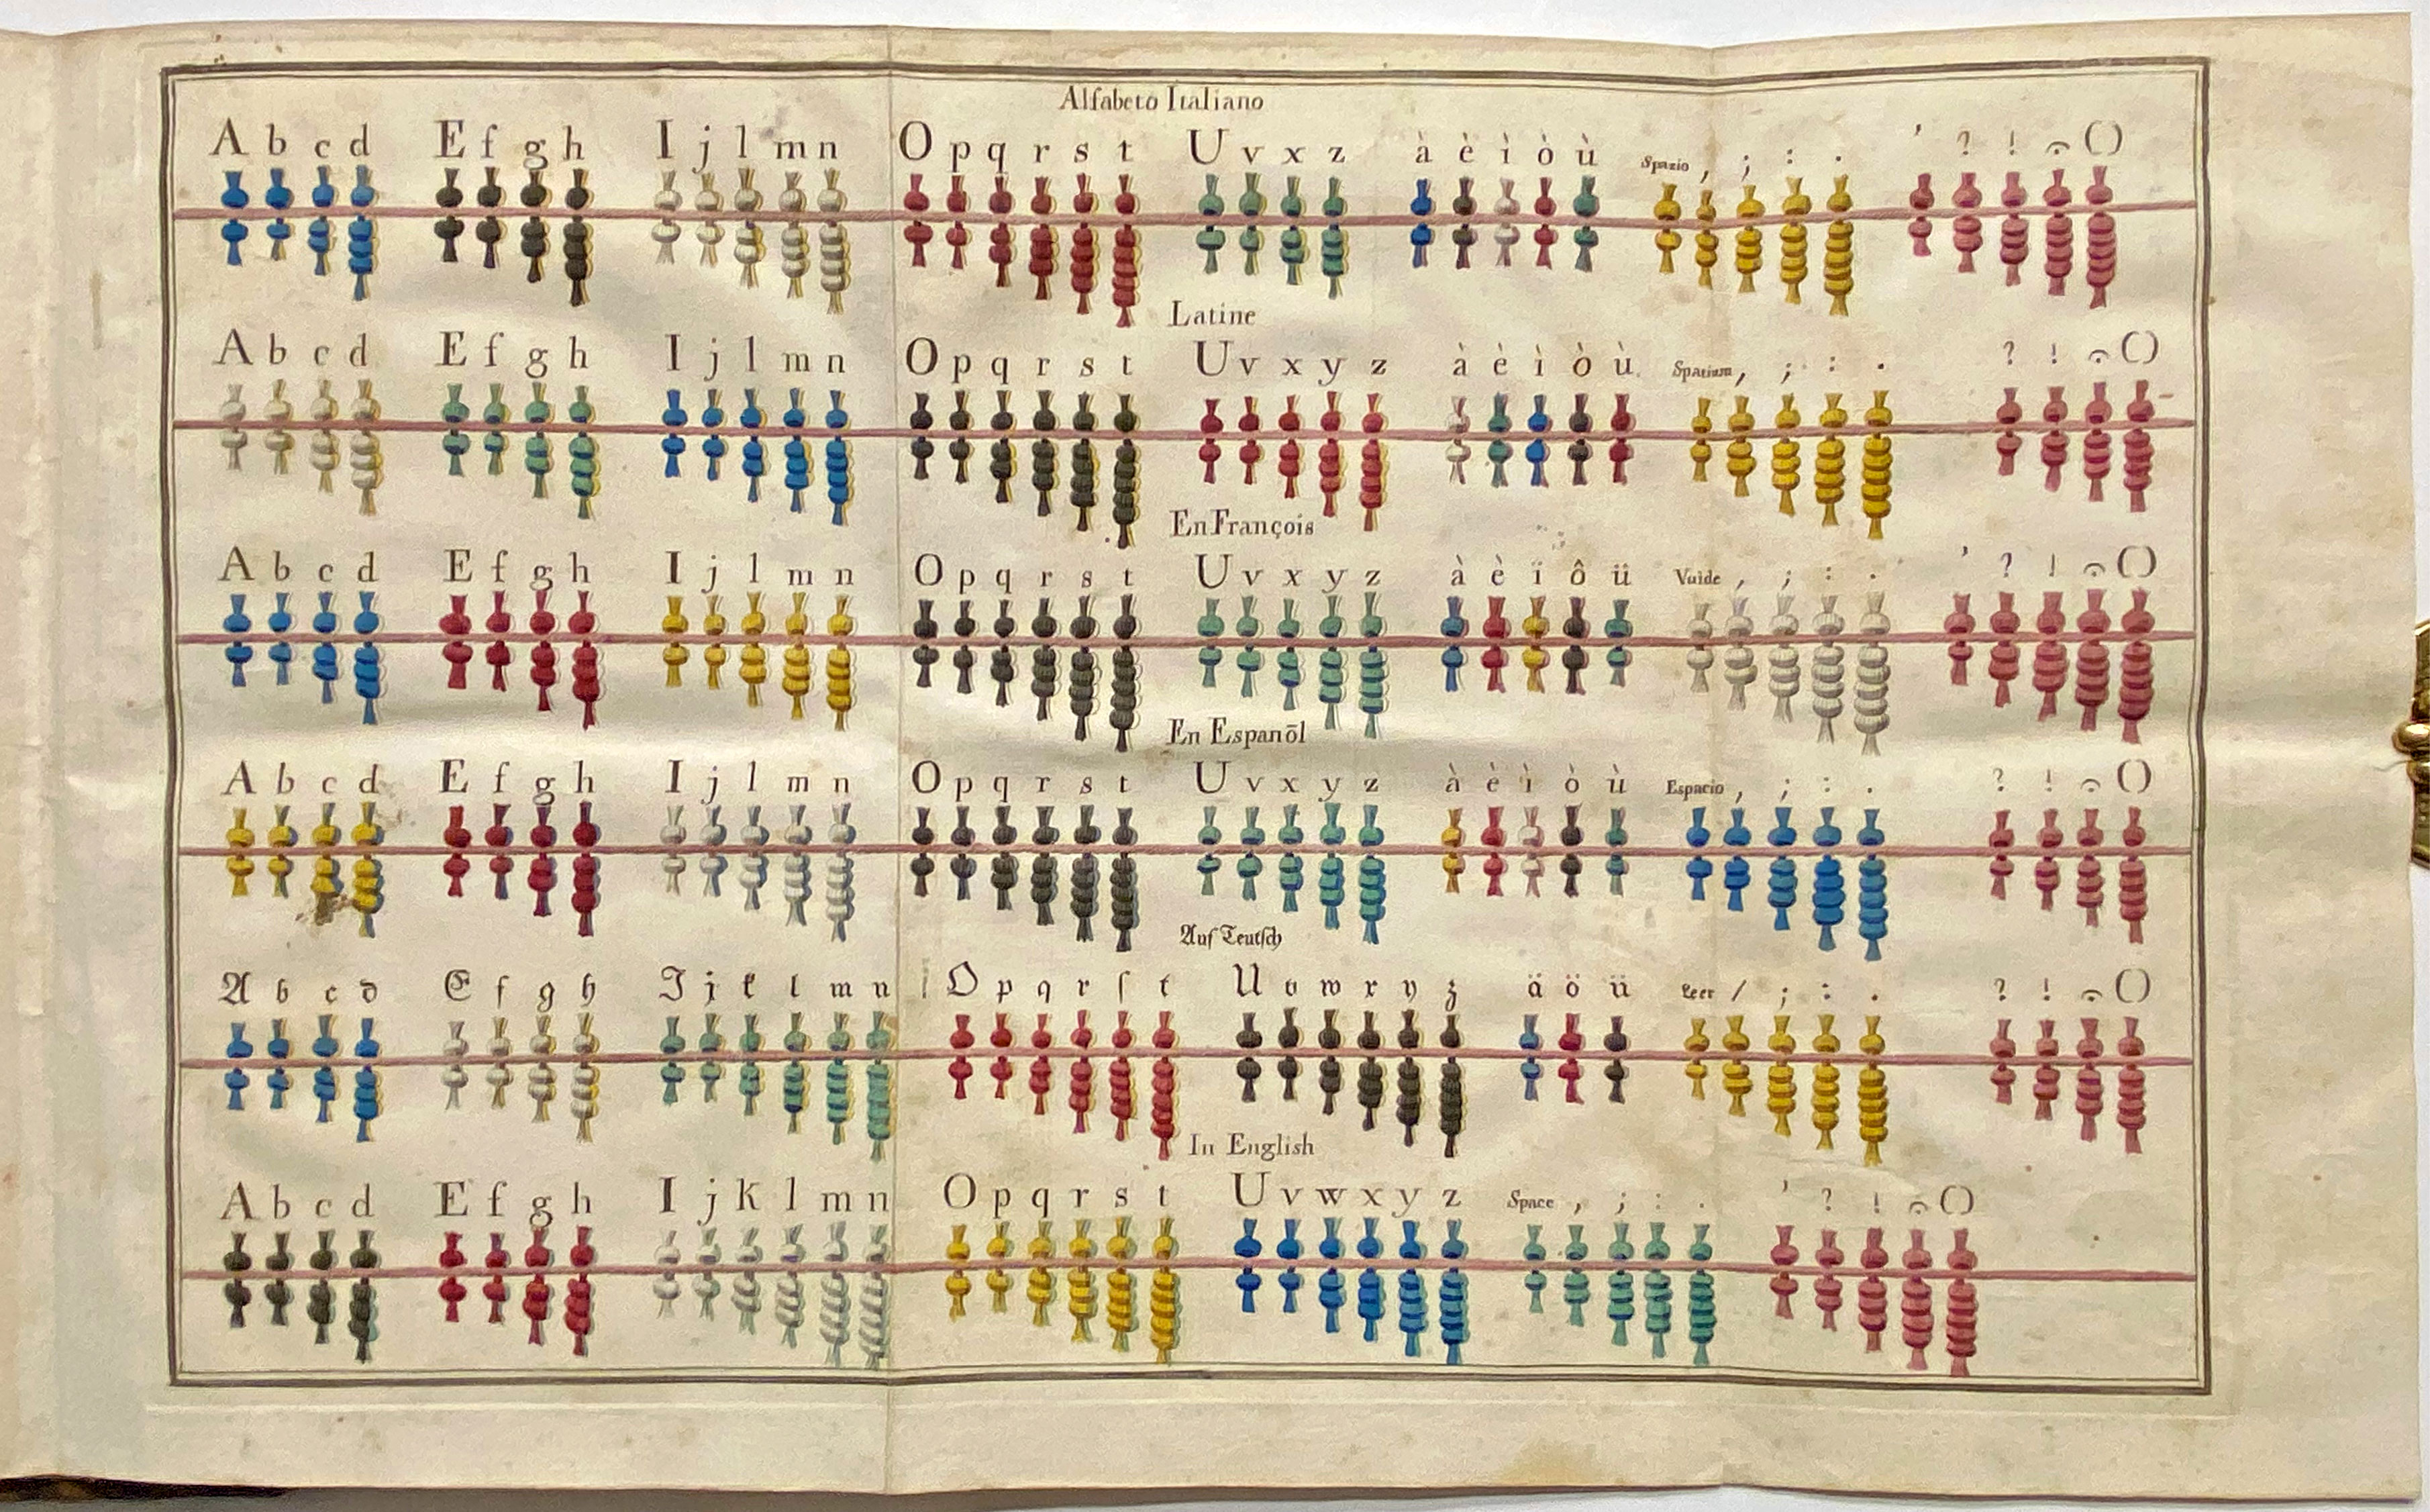 Alfabeto Italiano
A b c d E f g h I j l m n O p q r s t U v x z à è ì ò ù Spazio , ; : . ' ? ! 𝄐 ()
Latine
A b c d E f g h I j l m n O p q r s t U v x y z à è ì ò ù Spatium , ; : . ? ! 𝄐 ()
En François
A b c d E f g h I j l m n O p q r s t U v x y z à è ï ô ü Vuide , ; : . ' ? ! 𝄐 ()
En Espanōl
A b c d E f g h I j l m n O p q r s t U v x y z à è ì ò ù Espacio , ; : . ? ! 𝄐 ()
Auf Teutſch
A b c d E f g h I j k l m n O p q r ſ t U v w x y z ä ö ü Leer / ; : . ? ! 𝄐 ()
In English
A b c d E f g h I j k l m n O p q r s t U v w x y z Space , ; : . ' ? ! 𝄐 ()